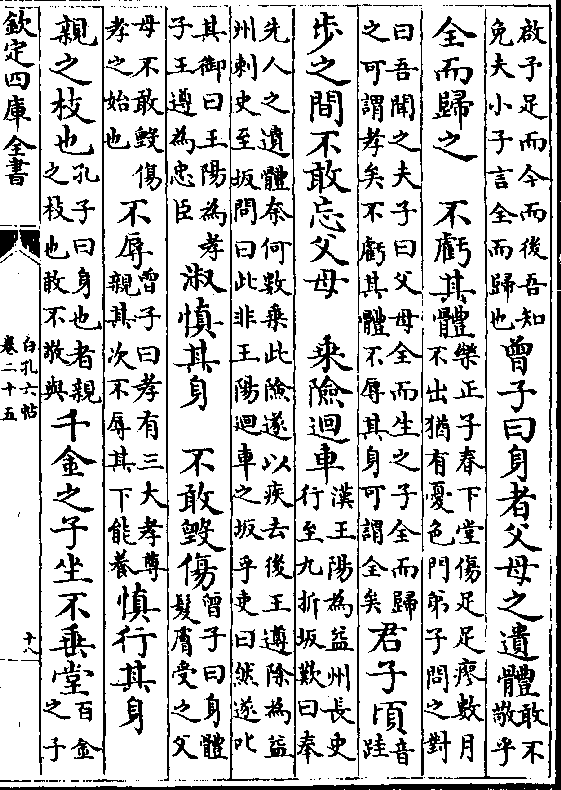 啟予足而今而後吾知免夫小子言全而歸也曾子曰身者父母之遺體敢不敬乎
全而歸之 不虧其體樂正子春下堂傷足足瘳數月不出猶有憂色門弟子問之對
曰吾聞之夫子曰父母全而生之子全而歸之可謂孝矣不虧其體不辱其身可謂全矣君子頃音跬
步之間不敢忘父母 乘險迴車漢王陽為益州長史行至九折坂歎曰奉
先人之遺體奈何數乘此險遂以疾去後王遵除為益州刺史至坂問曰此非王陽迴車之坂乎吏曰然遂叱
其御曰王陽為孝子王遵為忠臣淑慎其身 不敢毀傷曾子曰身體髮膚受之父
母不敢毀傷孝之始也不辱曾子曰孝有三大孝尊親其次不辱其下能養慎行其身
親之枝也孔子曰身也者親之枝也敢不敬與千金之子坐不垂堂百金之子
欽定四庫全書
白孔六帖
卷二十五
十八